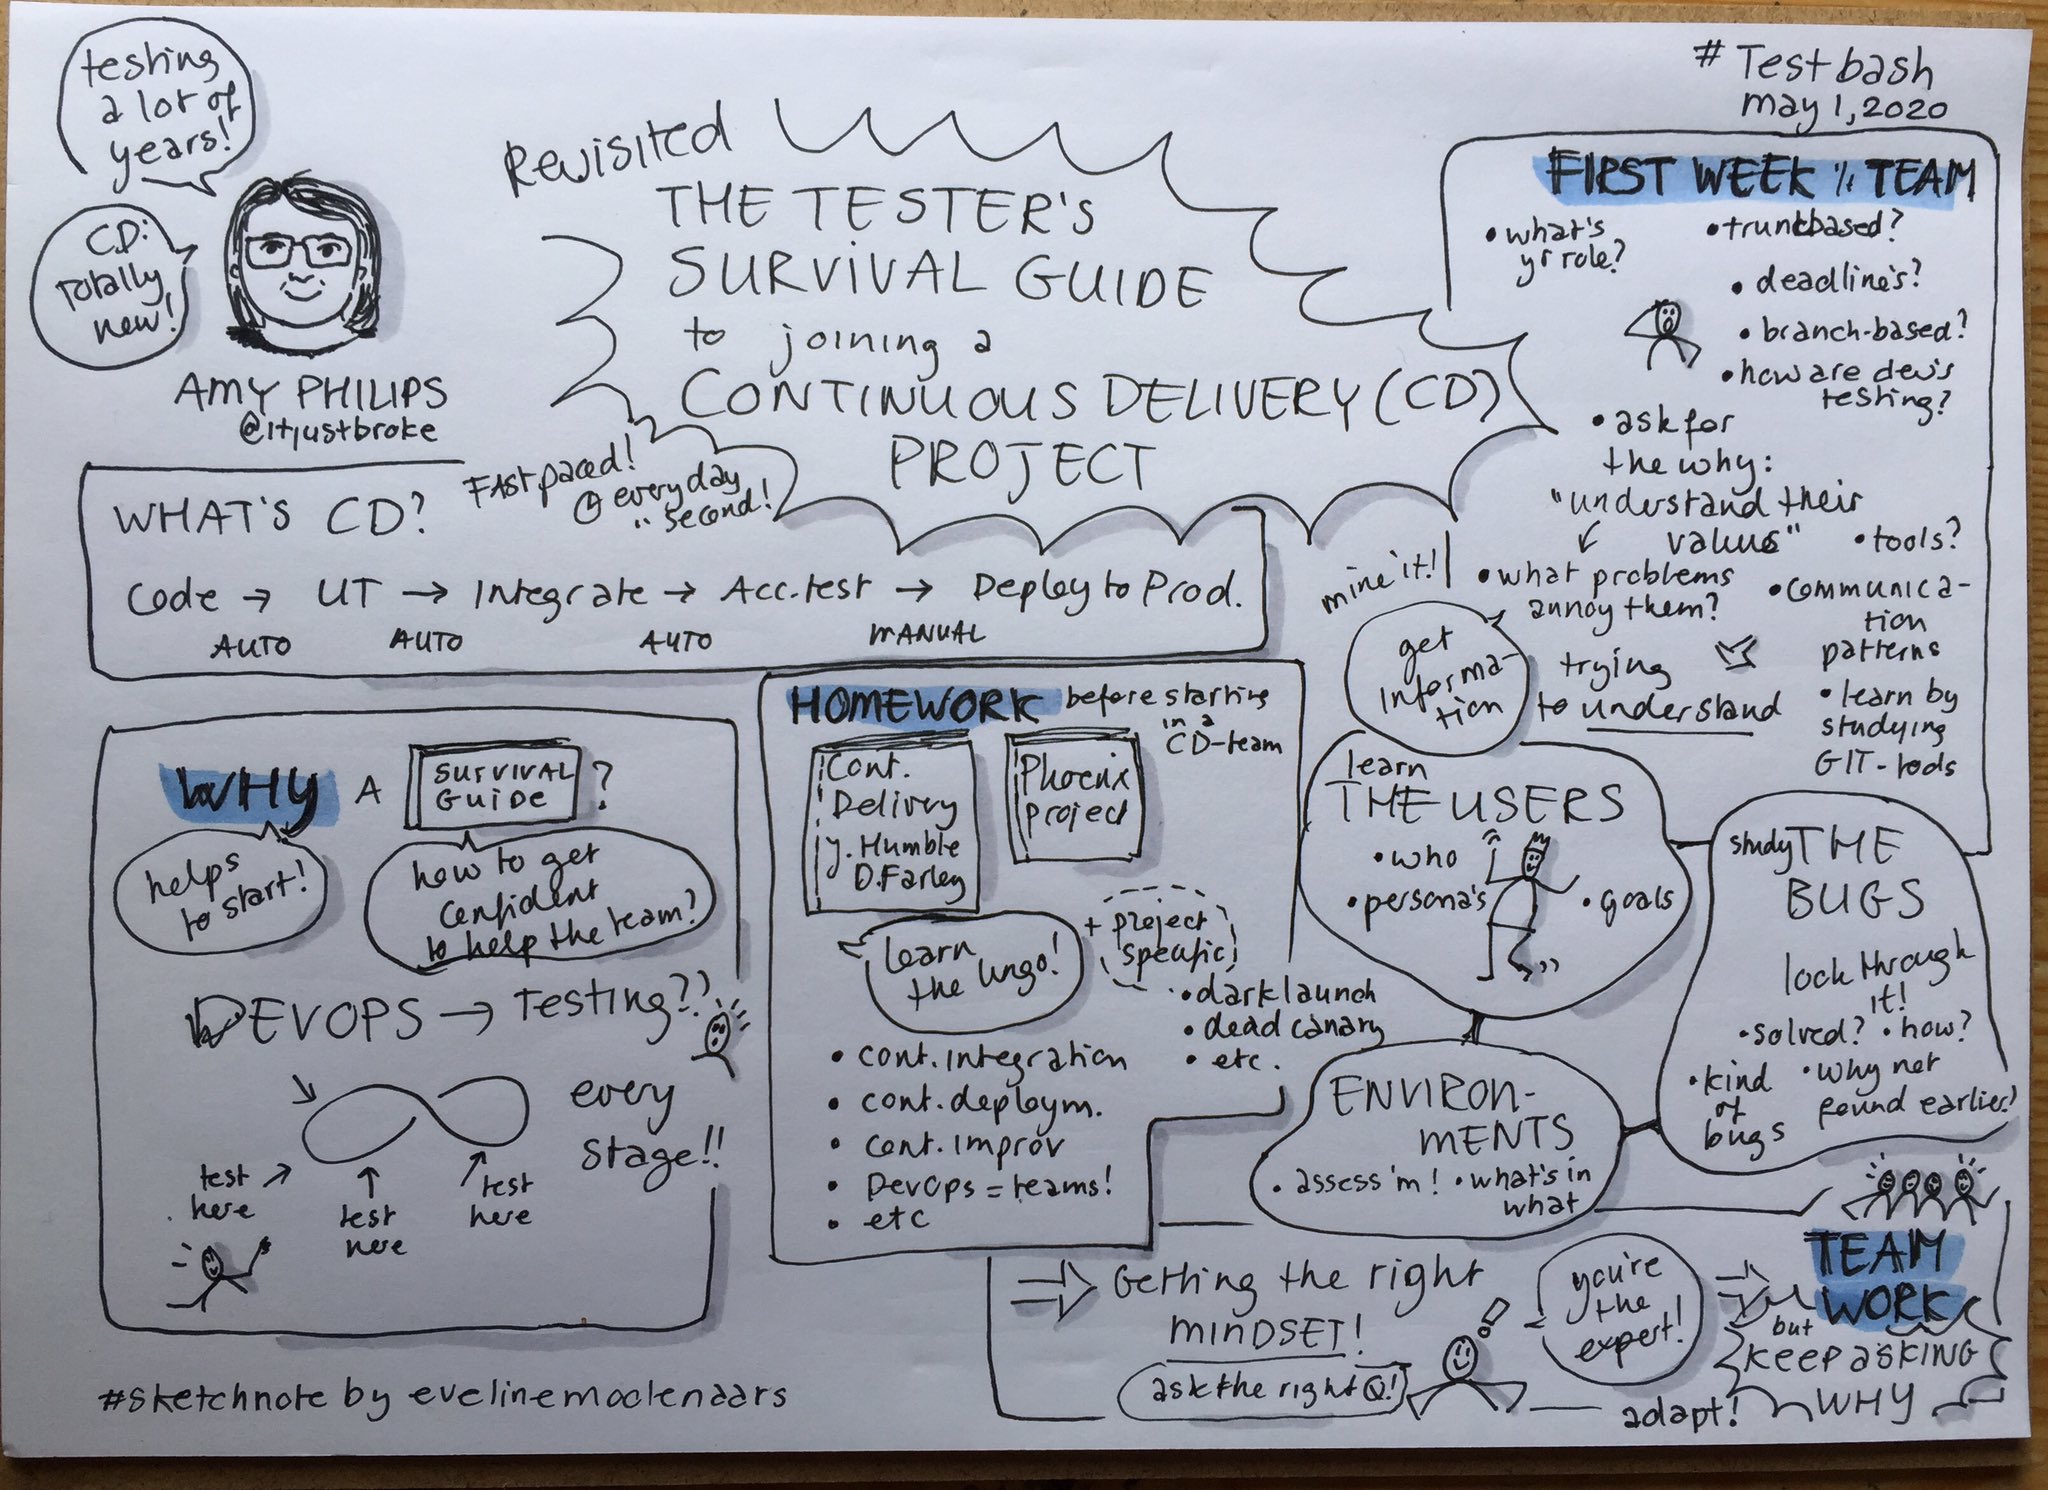 testing
a lot of
years!
CD:
totally
new!
AMY PHILIPS
@itjustbroke
Revisited
THE TESTER'S
SURVIVAL GUIDE
to joining a
CONTINUOUS DELIVERY (CD)
PROJECT
# Testbash
may 1, 2020
WHAT'S CD?
Fast paced!
every day
" second!
Code → UT → Integrate → Acc.test → Deploy to Prod.
AUTO AUTO AUTO MANUAL
WHY A SURVIVAL
GUIDE ?
helps
to start!
how to get
confident
to help the team?
DEVOPS → Testing??
every
stage!!
test
here
test
here
test
here
HOMEWORK before starting
in a
CD-team
Cont.
Delivery
J. Humble
D. Farley
Phoenix
project
learn
the lingo!
+ project
specific
• dark launch
• dead canary
• etc.
• cont. integration
• cont. deploym.
• cont. improv
• DevOps = teams!
• etc
FIRST WEEK % TEAM
• what's
yr role?
• trunkbased?
• deadline's?
• branch-based?
• how are dev's
testing?
• ask for
the why:
"understand their
values"
• what problems
annoy them?
• tools?
• communica-
tion
patterns
• learn by
studying
GIT-
trying
to understand
mine it!
get
informa-
tion
learn
THE USERS
• who
• persona's
• goals
study THE
BUGS
look through
it!
• solved? • how?
• kind
of
bugs
• why not
found earlier?
ENVIRON-
MENTS
• assess 'm! • what's in
what
⇒ Getting the right
MINDSET!
ask the right Q!
you're
the
expert!
TEAM
WORK
but
KEEP ASKING
WHY
adapt!
#sketchnote by evelinemoolenaars